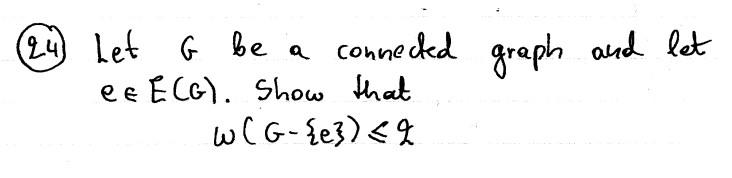 (24) Let G be a connected graph and let
e ∈ E(G). Show that
ω(G-{e}) ≤ 2